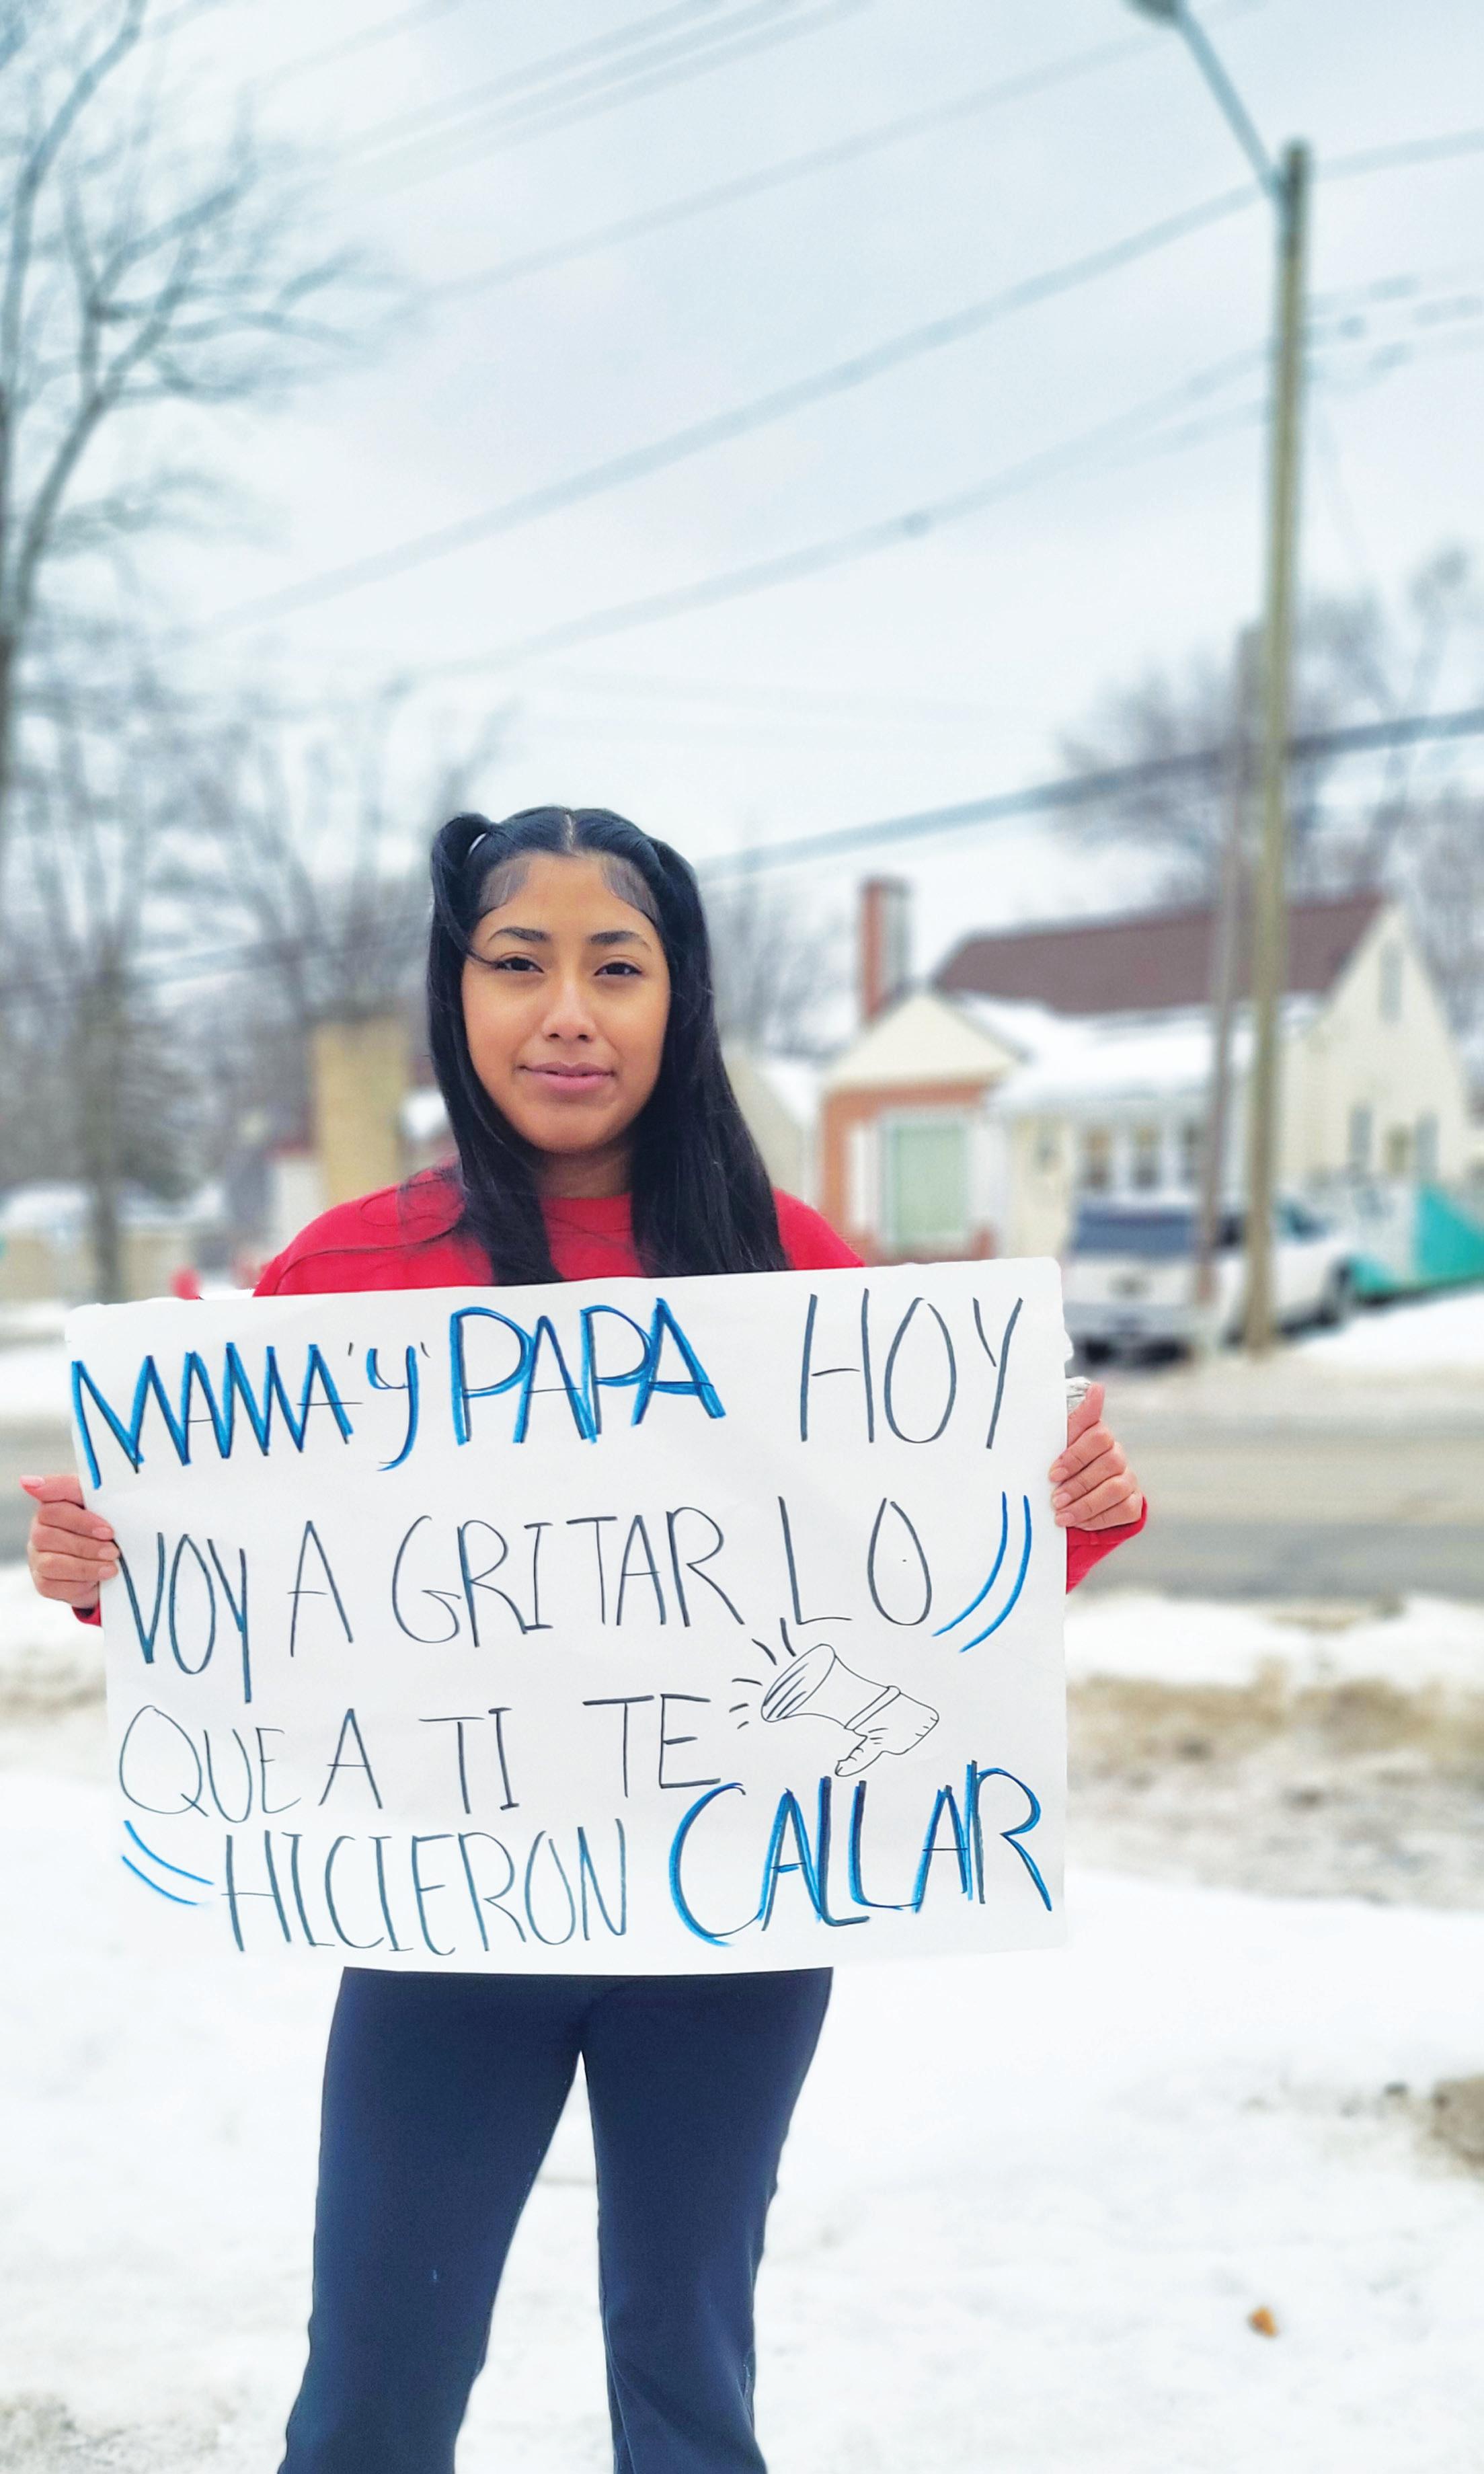 MAMA 'y' PAPA HOY
VOY A GRITAR LO
QUE A TI TE
HICIERON CALLAR